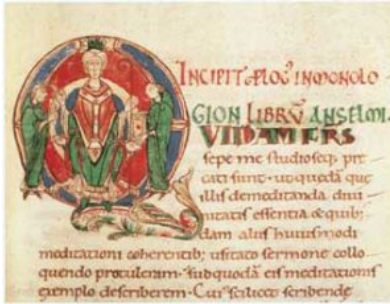 INCIPIT PLOG' IN MONOLO
GION LIBRŪ ANSELMI.
QUIDAM FRS
sepe me studioseq; pre
cati sunt. ut quedā que
illis de meditanda diui
nitatis essentia & quibus
dam aliis huiusmodi
meditationi coherentib; usitato sermone collo
quendo protuleram. sub quodā eis meditationis
exemplo describerem. Cui' scilicet scribende